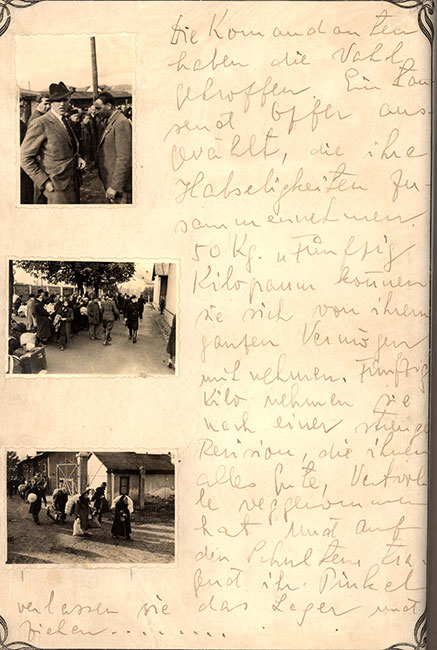 Die Komandanten
haben die Vahl
getroffen. Ein tau-
send Opfer aus-
gevählt, die ihre
Habseligkeiten zu-
sammennehmen.
50 Kg. u Fünfzig
Kilogramm können
sie sich von ihrem
ganzen Vermögen
mitnehmen. Fünfzig
Kilo nehmen sie
nach einer strenge
Revision, die ihnen
alles Gute, Vertvol-
le veggenommen
hat und auf
den Schultern tra-
gend ihr Pinkel
verlassen sie das Lager und
ziehen..........